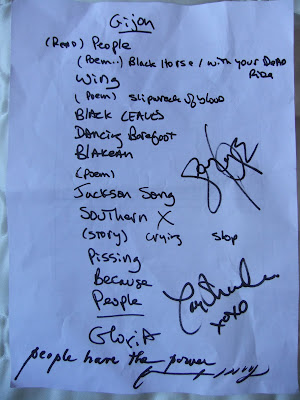 Gijon
(Read) People
(Poem..) Black Horse / with your Dead
Rida
Wing
(Poem) shipwreck of blood
BLACK LEAVES
DANCING Barefoot
BLAKEAN
(poem)
Jackson Song
SOUTHERN X
(STORY) crying stop
Pissing
Because
People
xoxo
GloriA
people have the power